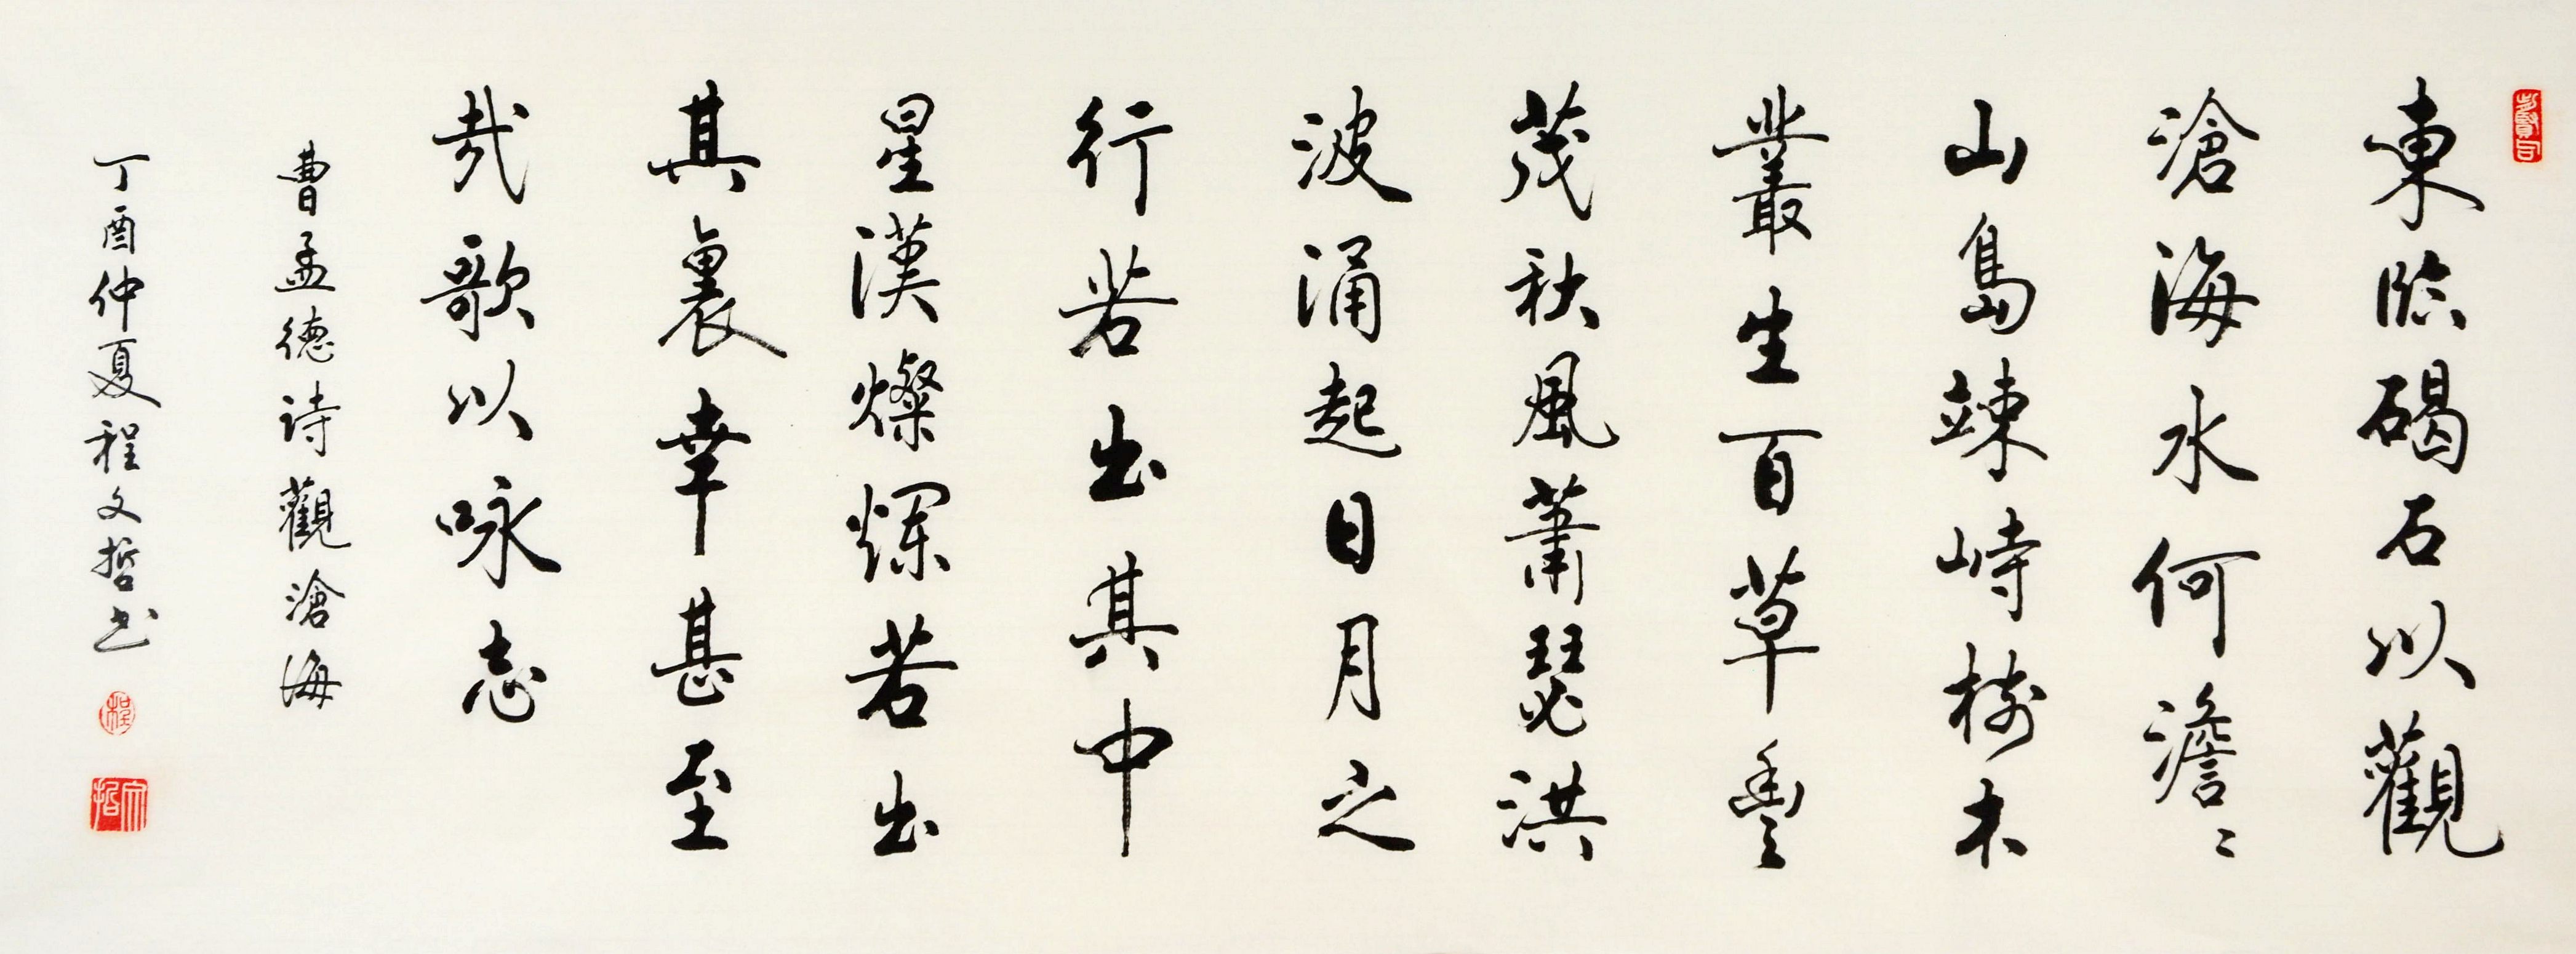 東臨碣石以觀
滄海水何澹〻
山島竦峙樹木
叢生百草豐
茂秋風蕭瑟洪
波涌起日月之
行若出其中
星漢燦爛若出
其裏幸甚至
哉歌以咏志
曹孟德诗觀滄海
丁酉仲夏程文哲书
程
文哲